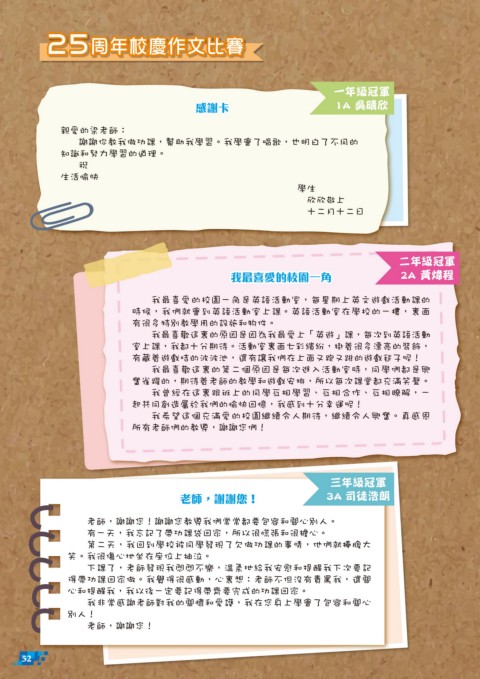 25周年校慶作文比賽
一年級冠軍
1A 吳曉欣
感謝卡
親愛的梁老師：
謝謝你教我做功課，幫助我學習。我學會了唱歌，也明白了不同的
知識和努力學習的道理。
祝
生活愉快
學生
欣欣敬上
十二月十二日
二年級冠軍
2A 黃煒程
我最喜愛的校園一角
我最喜愛的校園一角是英語活動室，每星期上英文遊戲活動課的
時候，我們就會到英語活動室上課。英語活動室在學校的一樓，裏面
有很多特別教學用的設施和物件。
我最喜歡這裏的原因是因為我最愛上「英遊」課，每次到英語活動
室上課，我都十分期待。活動室裏面七彩繽紛，掛着很多漂亮的裝飾，
有藏着遊戲情的波波池，還有讓我們在上面又跑又跳的遊戲毯子呢！
我最喜歡這裏的第二個原因是每次進入活動室時，同學們都是興
奮雀躍的，期待着老師的教學和遊戲安排，所以每次課堂都充滿笑聲。
我曾經在這裏跟班上的同學互相學習，互相合作，互相瞭解，一
起共同創造屬於我們的愉快回憶，我感到十分幸運呢！
我希望這個充滿愛的校園繼續令人期待，繼續令人興奮。真感恩
所有老師們的教導，謝謝您們！
三年級冠軍
3A 司徒浩朗
老師，謝謝您！
老師，謝謝您！謝謝您教導我們常常都要包容和關心別人。
有一天，我忘記了帶功課簿回家，所以很慌張和很擔心。
第二天，我回到學校被同學發現了欠做功課的事情，他們就捧腹大
笑。我很傷心地坐在座位上抽泣。
下課了，老師發現我悶悶不樂，溫柔地給我安慰和提醒我下次要記
得帶功課回家做。我覺得很感動，心裏想：老師不但沒有責罵我，還關
心和提醒我，我以後一定要記得帶齊要完成的功課回家。
我非常感謝老師對我的關懷和愛護，我在您身上學會了包容和關心
別人！
老師，謝謝您！
52